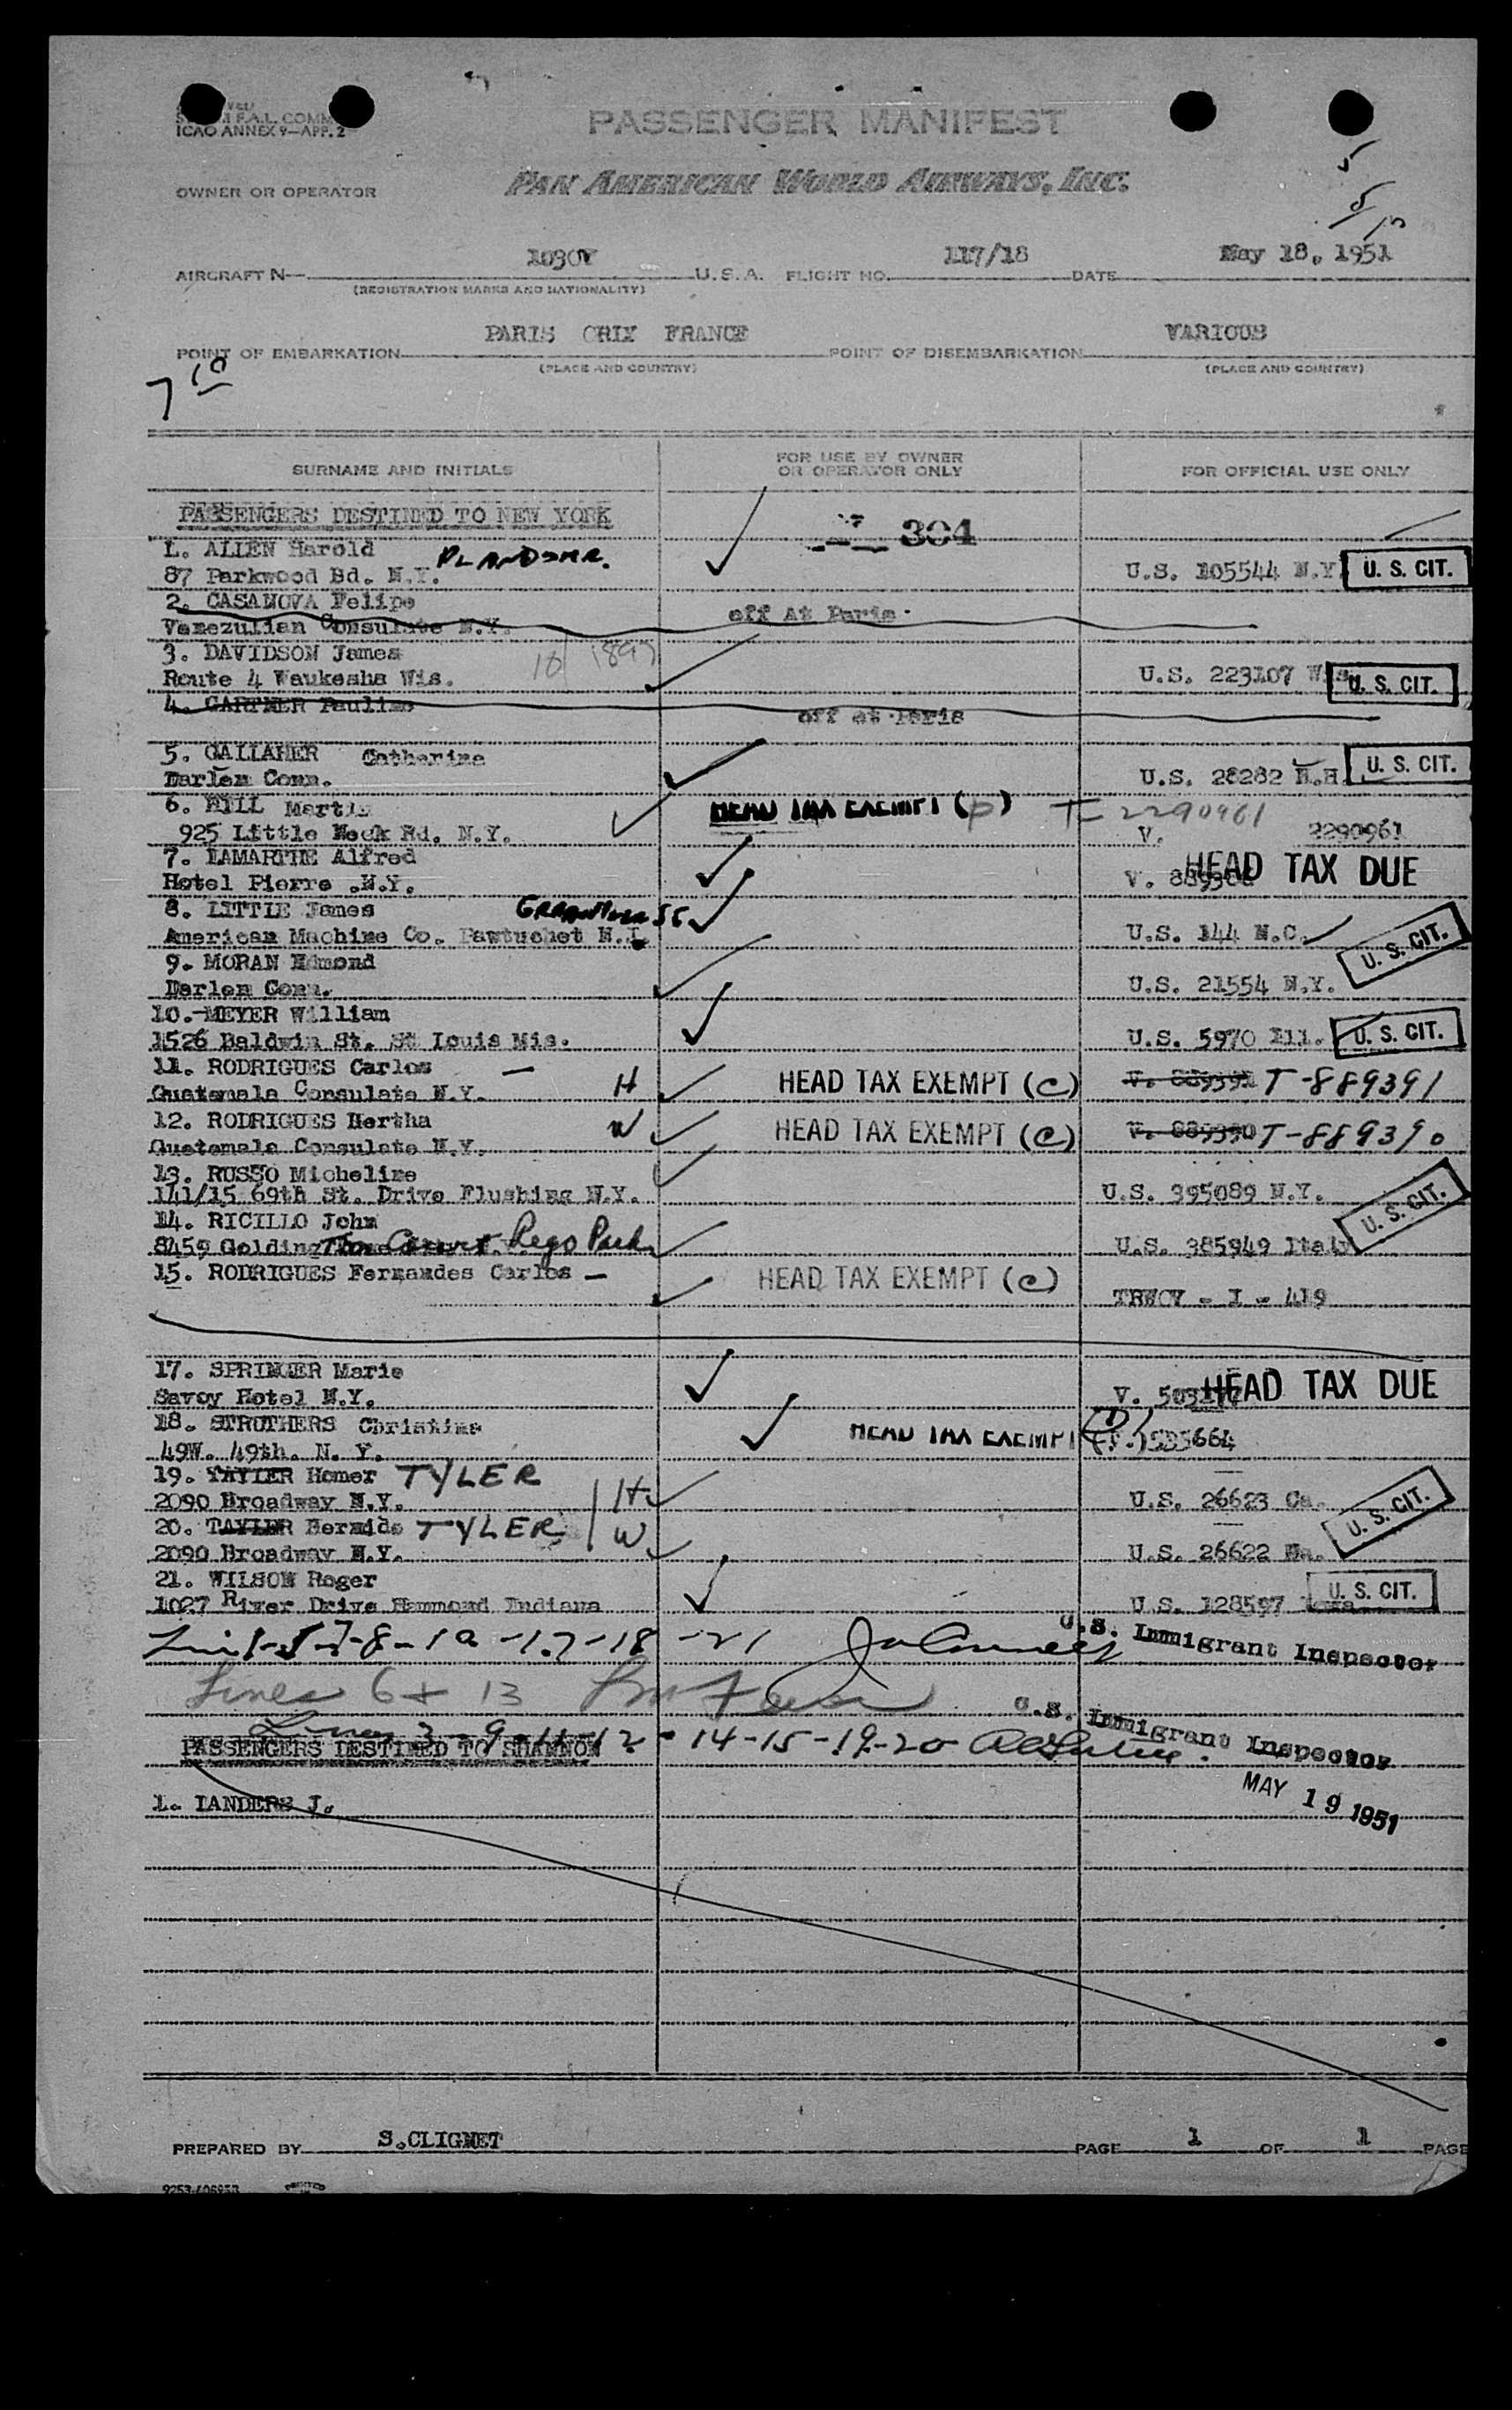 F.A.L. COMM
ICAO ANNEX 9—APP. 2
PASSENGER MANIFEST
OWNER OR OPERATOR
PAN AMERICAN WORLD AIRWAYS, INC.
AIRCRAFT N— 1030V U.S.A. FLIGHT NO. 117/18 DATE May 18, 1951
(REGISTRATION MARKS AND NATIONALITY)
POINT OF EMBARKATION PARIS ORLY FRANCE POINT OF DISEMBARKATION VARIOUS
(PLACE AND COUNTRY) (PLACE AND COUNTRY)
7 10
SURNAME AND INITIALS FOR USE BY OWNER OR OPERATOR ONLY FOR OFFICIAL USE ONLY
PASSENGERS DESTINED TO NEW YORK
304
1. ALLEN Harold
87 Parkwood Bd. N.Y. PLANDOME. U.S. 105544 N.Y. U. S. CIT.
2. CASANOVA Felipe off At Paris
Venezulian Consulate N.Y.
3. DAVIDSON James
Route 4 Waukesha Wis. U.S. 223107 U. S. CIT.
4. GARTNER Pauline off at Paris
5. GALLAHER Catherine
Darlen Conn. U.S. 28282 N.H. U. S. CIT.
6. HILL Martin HEAD TAX EXEMPT (p) T-2290961
925 Little Neck Rd. N.Y. V. 2290961
7. LAMARTIE Alfred
Hotel Pierre .N.Y. V. HEAD TAX DUE
8. LITTLE James
American Machine Co. Pawtuchet U.S. 144 N.C. U. S. CIT.
9. MORAN Edmond
Darlen Conn. U.S. 21554 N.Y.
10.-MEYER William
1526 Baldwin St. St Louis Mis. U.S. 5970 Ill. U. S. CIT.
11. RODRIGUES Carlos —
Guatemala Consulate N.Y. H HEAD TAX EXEMPT (c) V. 889391 T-889391
12. RODRIGUES Hertha
Guatemala Consulate N.Y. W HEAD TAX EXEMPT (c) V. 889390 T-889390
13. RUSSO Micheline
141/15 69th St. Drive Flushing N.Y. U.S. 395089 N.Y. U. S. CIT.
14. RICILLO John
8459 Golding Court Rego Park U.S. 385949 Italy
15. RODRIGUES Fernandes Carlos — HEAD TAX EXEMPT (c)
TRWCV - I - 419
17. SPRINGER Marie
Savoy Hotel N.Y. V. HEAD TAX DUE
18. STRUTHERS Christine
49W. 49th. N. Y. HEAD TAX EXEMPT
19. TAYLER Homer TYLER
2090 Broadway N.Y. H U.S. 26623 Ca. U. S. CIT.
20. TAYLER TYLER
2090 Broadway N.Y. W U.S. 26622
21. WILSON Roger
1027 River Drive Hammond Indiana U.S. 128597 U. S. CIT.
1-5-7-8-10-17-18-21 U.S. Immigrant Inspector
Lines 6 + 13
U.S. Immigrant Inspector
Lines 3-9-11-12-14-15-19-20
PASSENGERS DESTINED TO SHANNON
MAY 19 1951
1. LANDERS J.
PREPARED BY S.CLIGNET PAGE 1 OF 1 PAGE